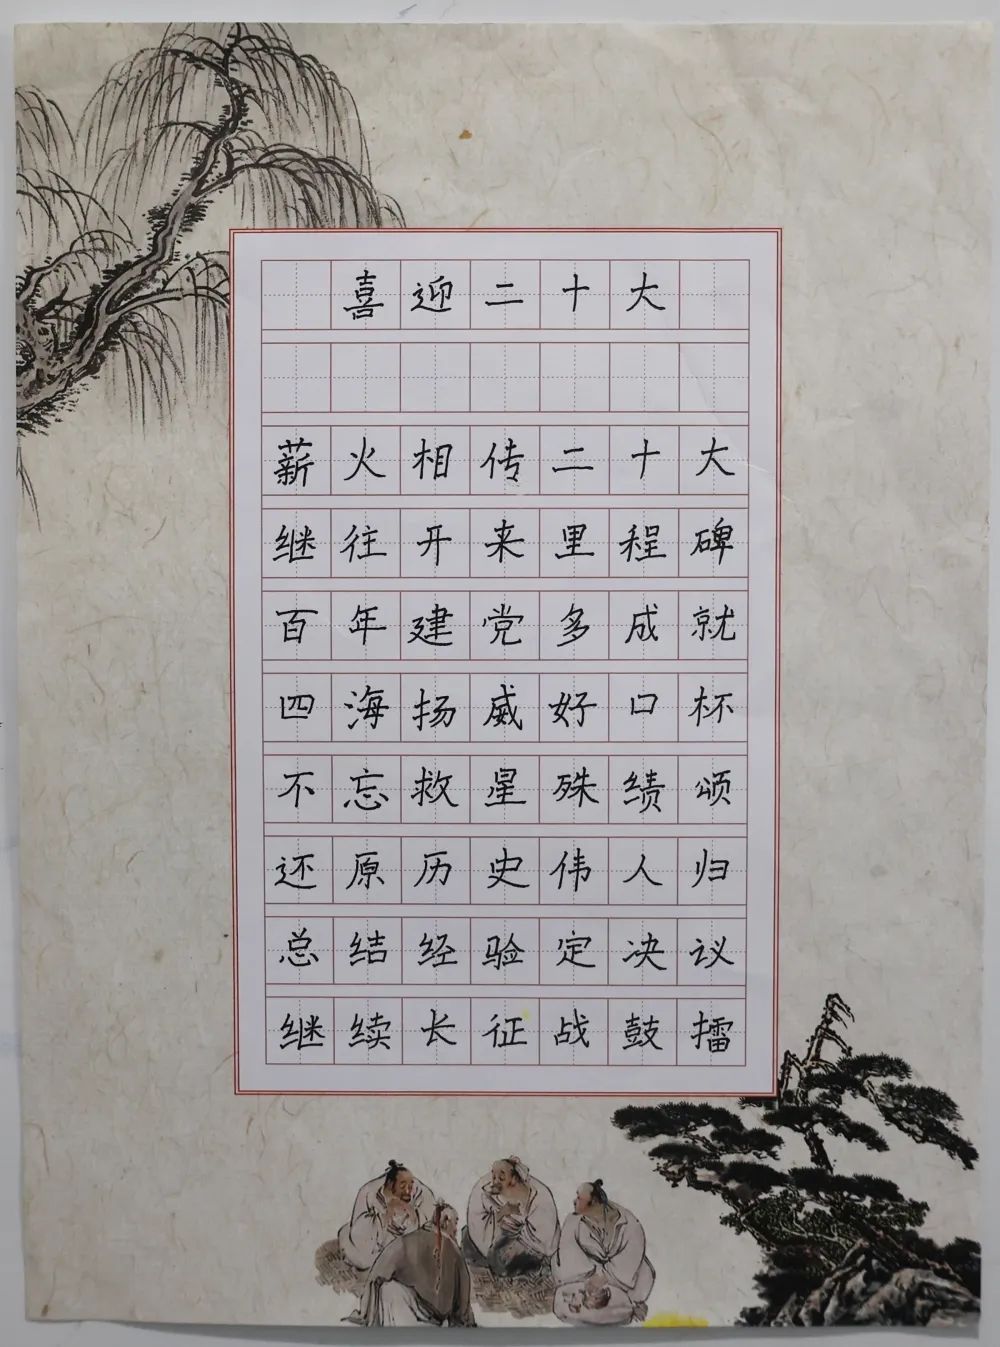 喜迎二十大
薪火相传二十大
继往开来里程碑
百年建党多成就
四海扬威好口杯
不忘救星殊绩颂
还原历史伟人归
总结经验定决议
继续长征战鼓擂